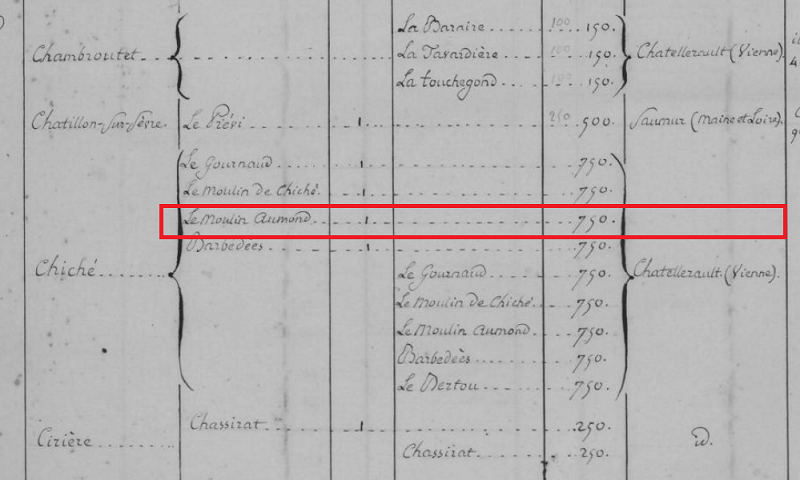 La Baraire.... 100 150.
Chambroutet... La Tavardière.. 100 150. Chatellerault (Vienne).
La touchegond... 100 150.
Chatillon-sur-Sèvre. Le Prévi.... 1.... 250 500. Saumur (Maine et Loire).
Le Gournaud.... 1.... 750.
Le Moulin de Chiché. 1.... 750.
Le Moulin Aumond.... 1.... 750.
Barbedées.... 1.... 750.
Chiché........ Le Gournaud.... 750. Chatellerault (Vienne).
Le Moulin de Chiché. 750.
Le Moulin Aumond.. 750.
Barbedèes..... 750.
Le Bertou.... 750.
Chassirat.... 1.... 250.
Cirière........ id.
Chassirat.... 250.